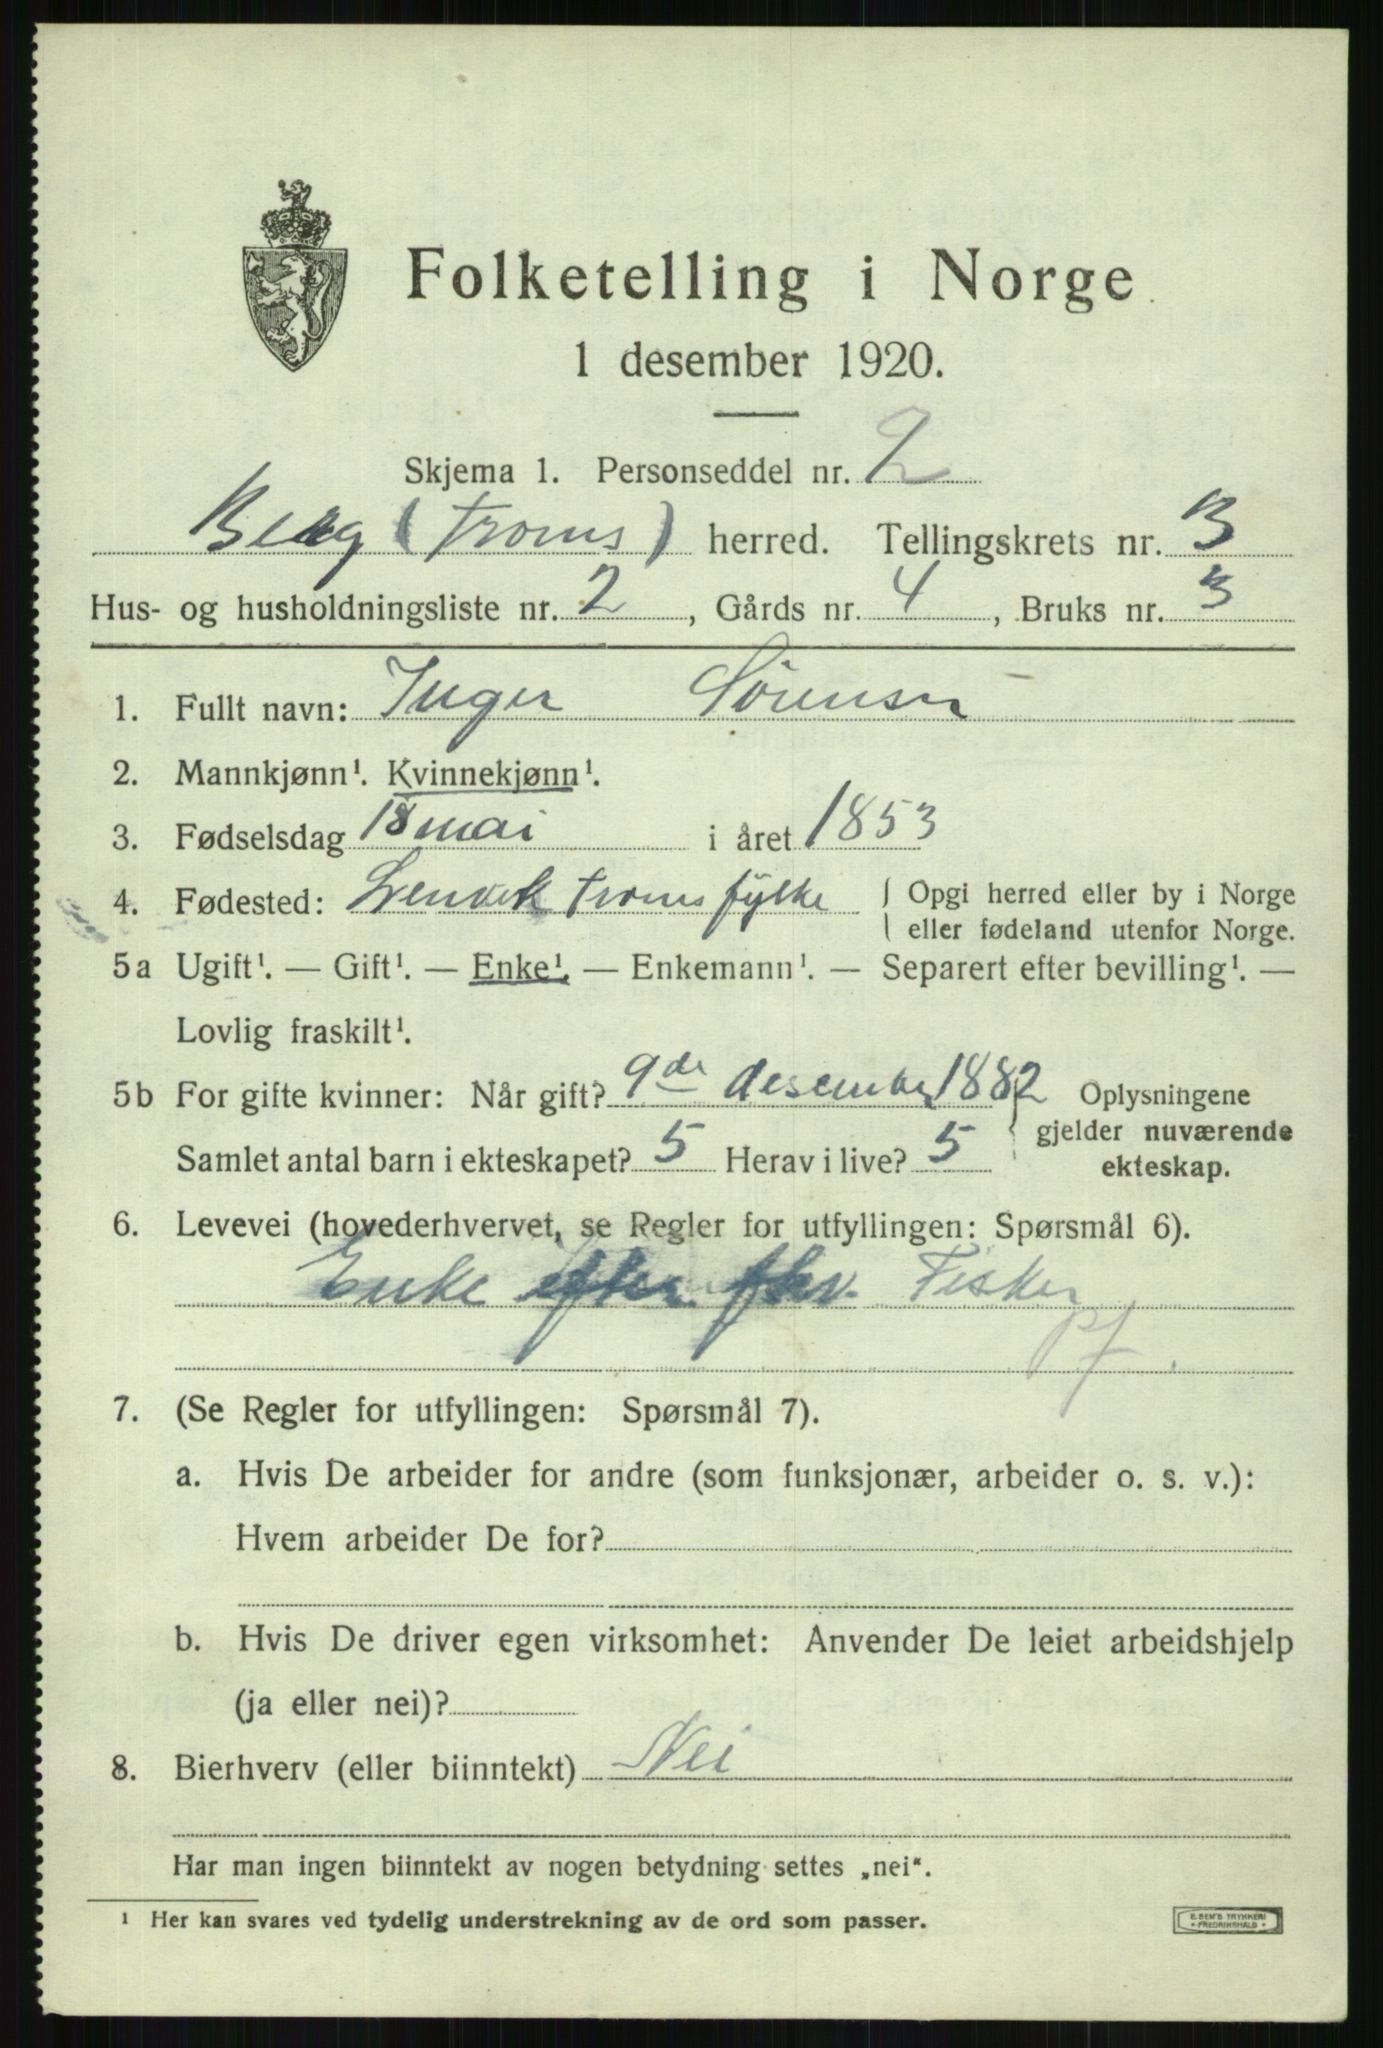 Folketelling i Norge
1 desember 1920.
Skjema 1. Personseddel nr. 2
Berg (Troms) herred. Tellingskrets nr. 3
Hus- og husholdningsliste nr. 2, Gårds nr. 4, Bruks nr. 3
1. Fullt navn: Inger Sørensen
2. Mannkjønn¹. Kvinnekjønn¹.
3. Fødselsdag 18 mai i året 1853
4. Fødested: Lenvik Troms fylke { Opgi herred eller by i Norge
eller fødeland utenfor Norge.
5a Ugift¹. — Gift¹. — Enke¹. — Enkemann¹. — Separert efter bevilling¹. —
Lovlig fraskilt¹.
5b For gifte kvinner: Når gift? 9de desember 1882 } Oplysningene
gjelder nuværende
Samlet antal barn i ekteskapet? 5 Herav i live? 5
ekteskap.
6. Levevei (hovederhvervet, se Regler for utfyllingen: Spørsmål 6).
Enke efter fhv. Fisker
pf
7. (Se Regler for utfyllingen: Spørsmål 7).
a. Hvis De arbeider for andre (som funksjonær, arbeider o. s. v.):
Hvem arbeider De for?
b. Hvis De driver egen virksomhet: Anvender De leiet arbeidshjelp
(ja eller nei)?
8. Bierhverv (eller biinntekt) Nei
Har man ingen biinntekt av nogen betydning settes „nei“.
¹ Her kan svares ved tydelig understrekning av de ord som passer.
E. SEM'S TRYKKERI
FREDRIKSHALD